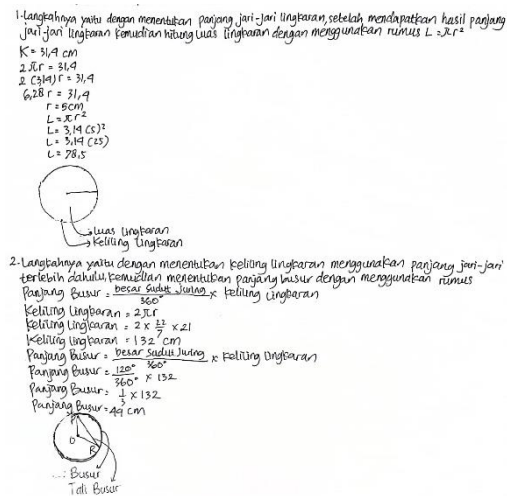 1. Langkahnya yaitu dengan menentukan panjang jari-jari lingkaran, setelah mendapatkan hasil panjang
jari-jari lingkaran kemudian hitung luas lingkaran dengan menggunakan rumus L = πr²
K = 31,4 cm
2πr = 31,4
2 (3,14) r = 31,4
6,28 r = 31,4
r = 5cm
L = πr²
L = 3,14 (5)²
L = 3,14 (25)
L = 78,5
Luas lingkaran
Keliling lingkaran
2. Langkahnya yaitu dengan menentukan keliling lingkaran menggunakan panjang jari-jari
terlebih dahulu, kemudian menentukan panjang busur dengan menggunakan rumus
Panjang Busur = besar sudut juring / 360° × keliling lingkaran
Keliling lingkaran = 2πr
Keliling lingkaran = 2 × 22/7 × 21
Keliling lingkaran = 132 cm
Panjang Busur = besar sudut juring / 360° × keliling lingkaran
Panjang Busur = 120°/360° × 132
Panjang Busur = 1/3 × 132
Panjang Busur = 44 cm
P
O
R
Busur
Tali Busur